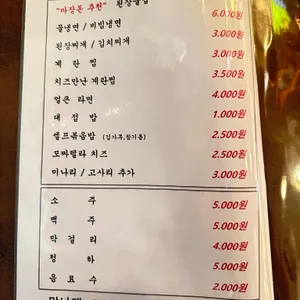 "마장돈 추천" 된장술밥
물냉면 / 비빔냉면 6.000원
된장찌개 / 김치찌개 3.000원
계 란 찜 3.000원
치즈만난 계란찜 3.500원
얼큰 라면 4.000원
대 접 밥 1.000원
셀프볶음밥 (김가루,참기름) 2.500원
모짜렐라 치즈 2.500원
미나리 / 고사리 추가 3.000원
소 주 5.000원
맥 주 5.000원
막 걸 리 4.000원
청 하 5.000원
음 료 수 2.000원